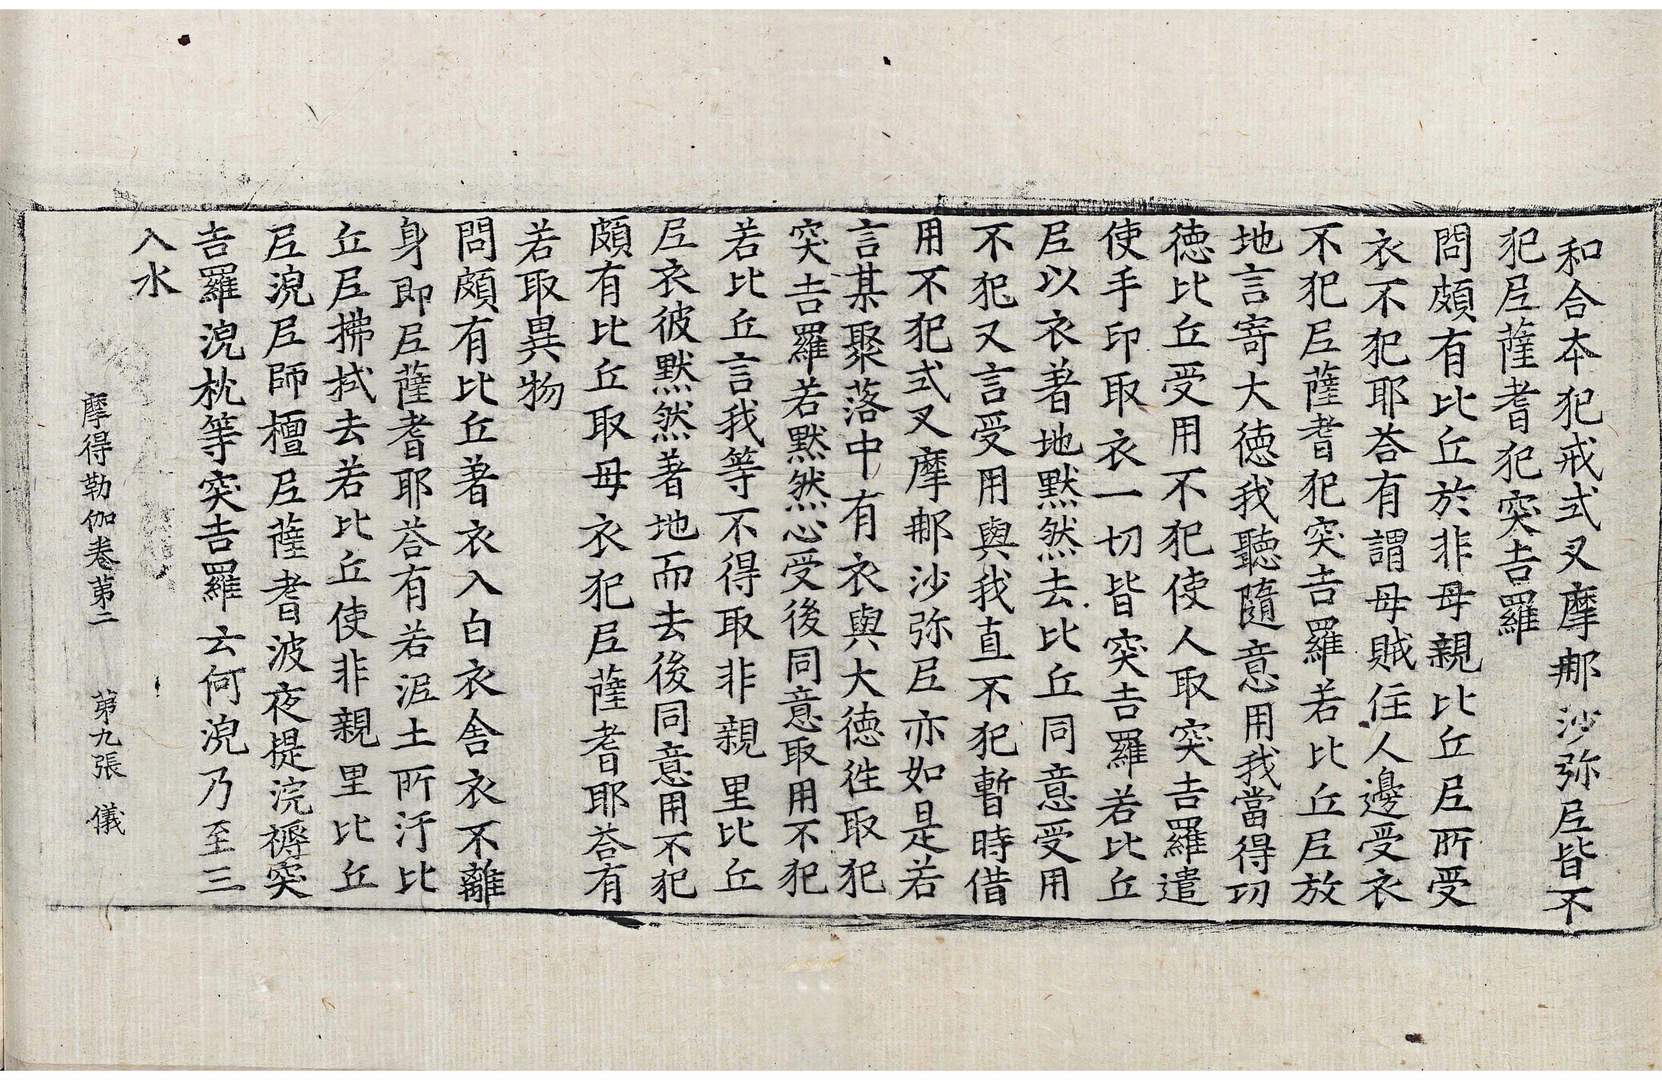 和合本犯戒式叉摩郍沙弥尼皆不
犯尼薩耆犯突吉羅
問頗有比丘於非母親比丘尼所受
衣不犯耶荅有謂母賊住人邊受衣
不犯尼薩耆犯突吉羅若比丘尼放
地言寄大德我聽隨意用我當得㓛
德比丘受用不犯使人取突吉羅遣
使手印取衣一切皆突吉羅若比丘
尼以衣著地默然去比丘同意受用
不犯又言受用與我直不犯暫時借
用不犯式叉摩郍沙弥尼亦如是若
言某聚落中有衣與大德往取犯
突吉羅若默然心受後同意取用不犯
若比丘言我等不得取非親里比丘
尼衣彼默然著地而去後同意用不犯
頗有比丘取母衣犯尼薩耆耶荅有
若取異物
問頗有比丘著衣入白衣舍衣不離
身即尼薩耆耶荅有若泥土所汙比
丘尼拂拭去若比丘使非親里比丘
尼浣尼師檀尼薩耆波夜提浣褥突
吉羅浣枕等突吉羅云何浣乃至三
入水
摩得勒伽卷第二 第九張 儀